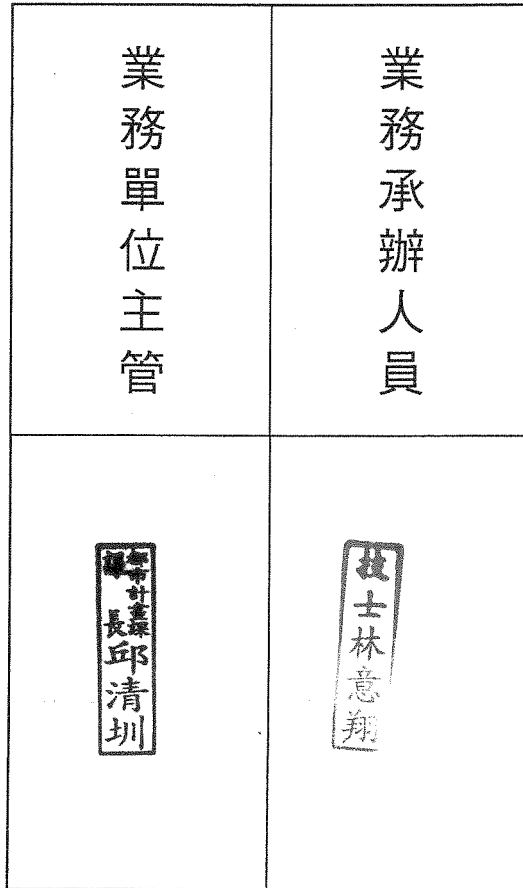 業務承辦人員
技士林意翔
業務單位主管
都市計畫課
課長邱清圳